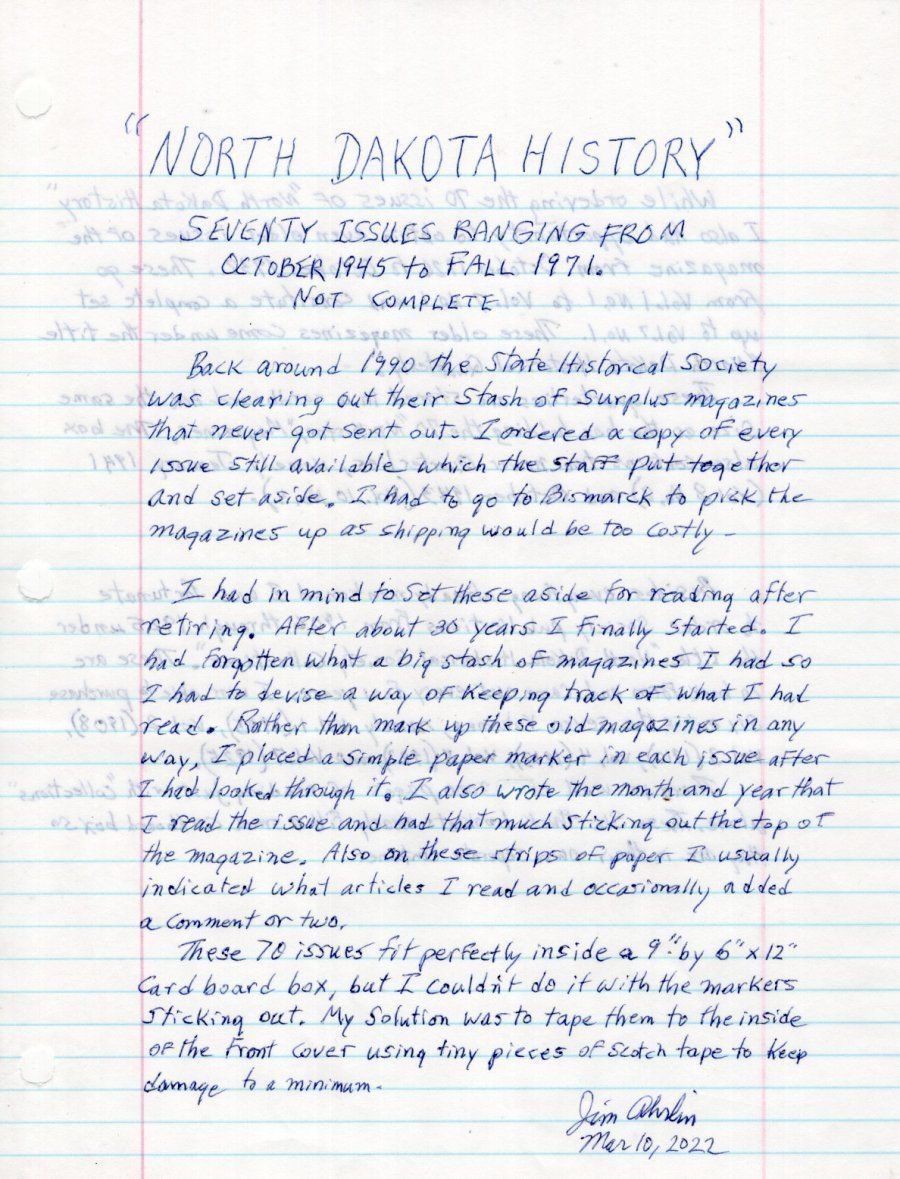 "NORTH DAKOTA HISTORY"
SEVENTY ISSUES RANGING FROM
OCTOBER 1945 to FALL 1971.
NOT COMPLETE
Back around 1990 the State Historical Society
was clearing out their stash of surplus magazines
that never got sent out. I ordered a copy of every
issue still available which the staff put together
and set aside. I had to go to Bismarck to pick the
magazines up as shipping would be too costly -
I had in mind to set these aside for reading after
retiring. After about 30 years I finally started. I
had forgotten what a big stash of magazines I had so
I had to devise a way of keeping track of what I had
read. Rather than mark up these old magazines in any
way, I placed a simple paper marker in each issue after
I had looked through it. I also wrote the month and year that
I read the issue and had that much sticking out the top of
the magazine. Also on these strips of paper I usually
indicated what articles I read and occasionally added
a comment or two.
These 70 issues fit perfectly inside a 9" by 6" x 12"
Card board box, but I couldn't do it with the markers
sticking out. My solution was to tape them to the inside
of the front cover using tiny pieces of scotch tape to keep
damage to a minimum.
Jim
Mar 10, 2022